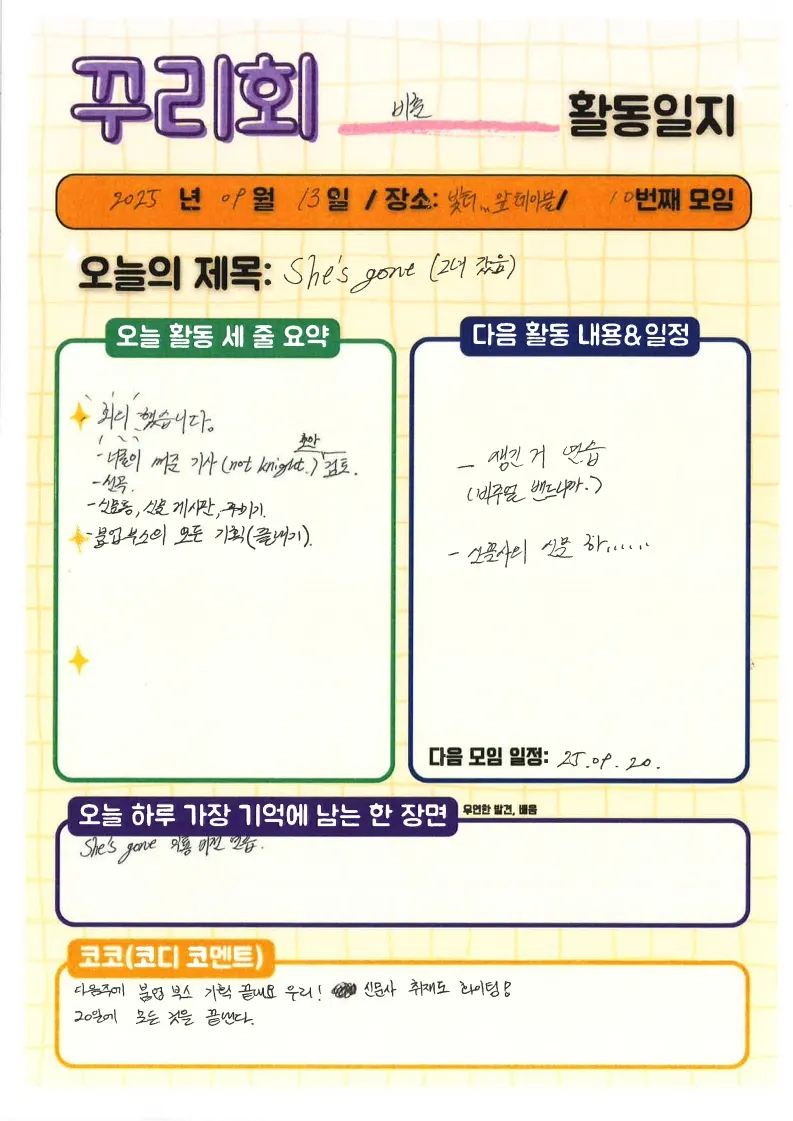 꾸리회 비폴 활동일지
2025 년 09월 13일 / 장소: 빛터 앞 테이블/ 10번째 모임
오늘의 제목: She's gone (그녀 갔음)
오늘 활동 세 줄 요약
회의 했습니다.
초안
- 너희들이 써준 기사 (not knight.) 검토.
- 선곡.
- 신문통, 신문 게시판, 꾸미기.
- 붐업부스의 모든 기획(끝내기).
다음 활동 내용&일정
- 챙긴 거 연습
(비주얼 밴드니까.)
- 신문사의 신문 하......
다음 모임 일정: 25.09.20.
오늘 하루 가장 기억에 남는 한 장면 우연한 발견, 배움
She's gone 버전 연습.
코코(코디 코멘트)
다음주에 붐업 부스 기획 끝내요 우리! 신문사 취재도 화이팅!
20일에 모든 것을 끝낸다.